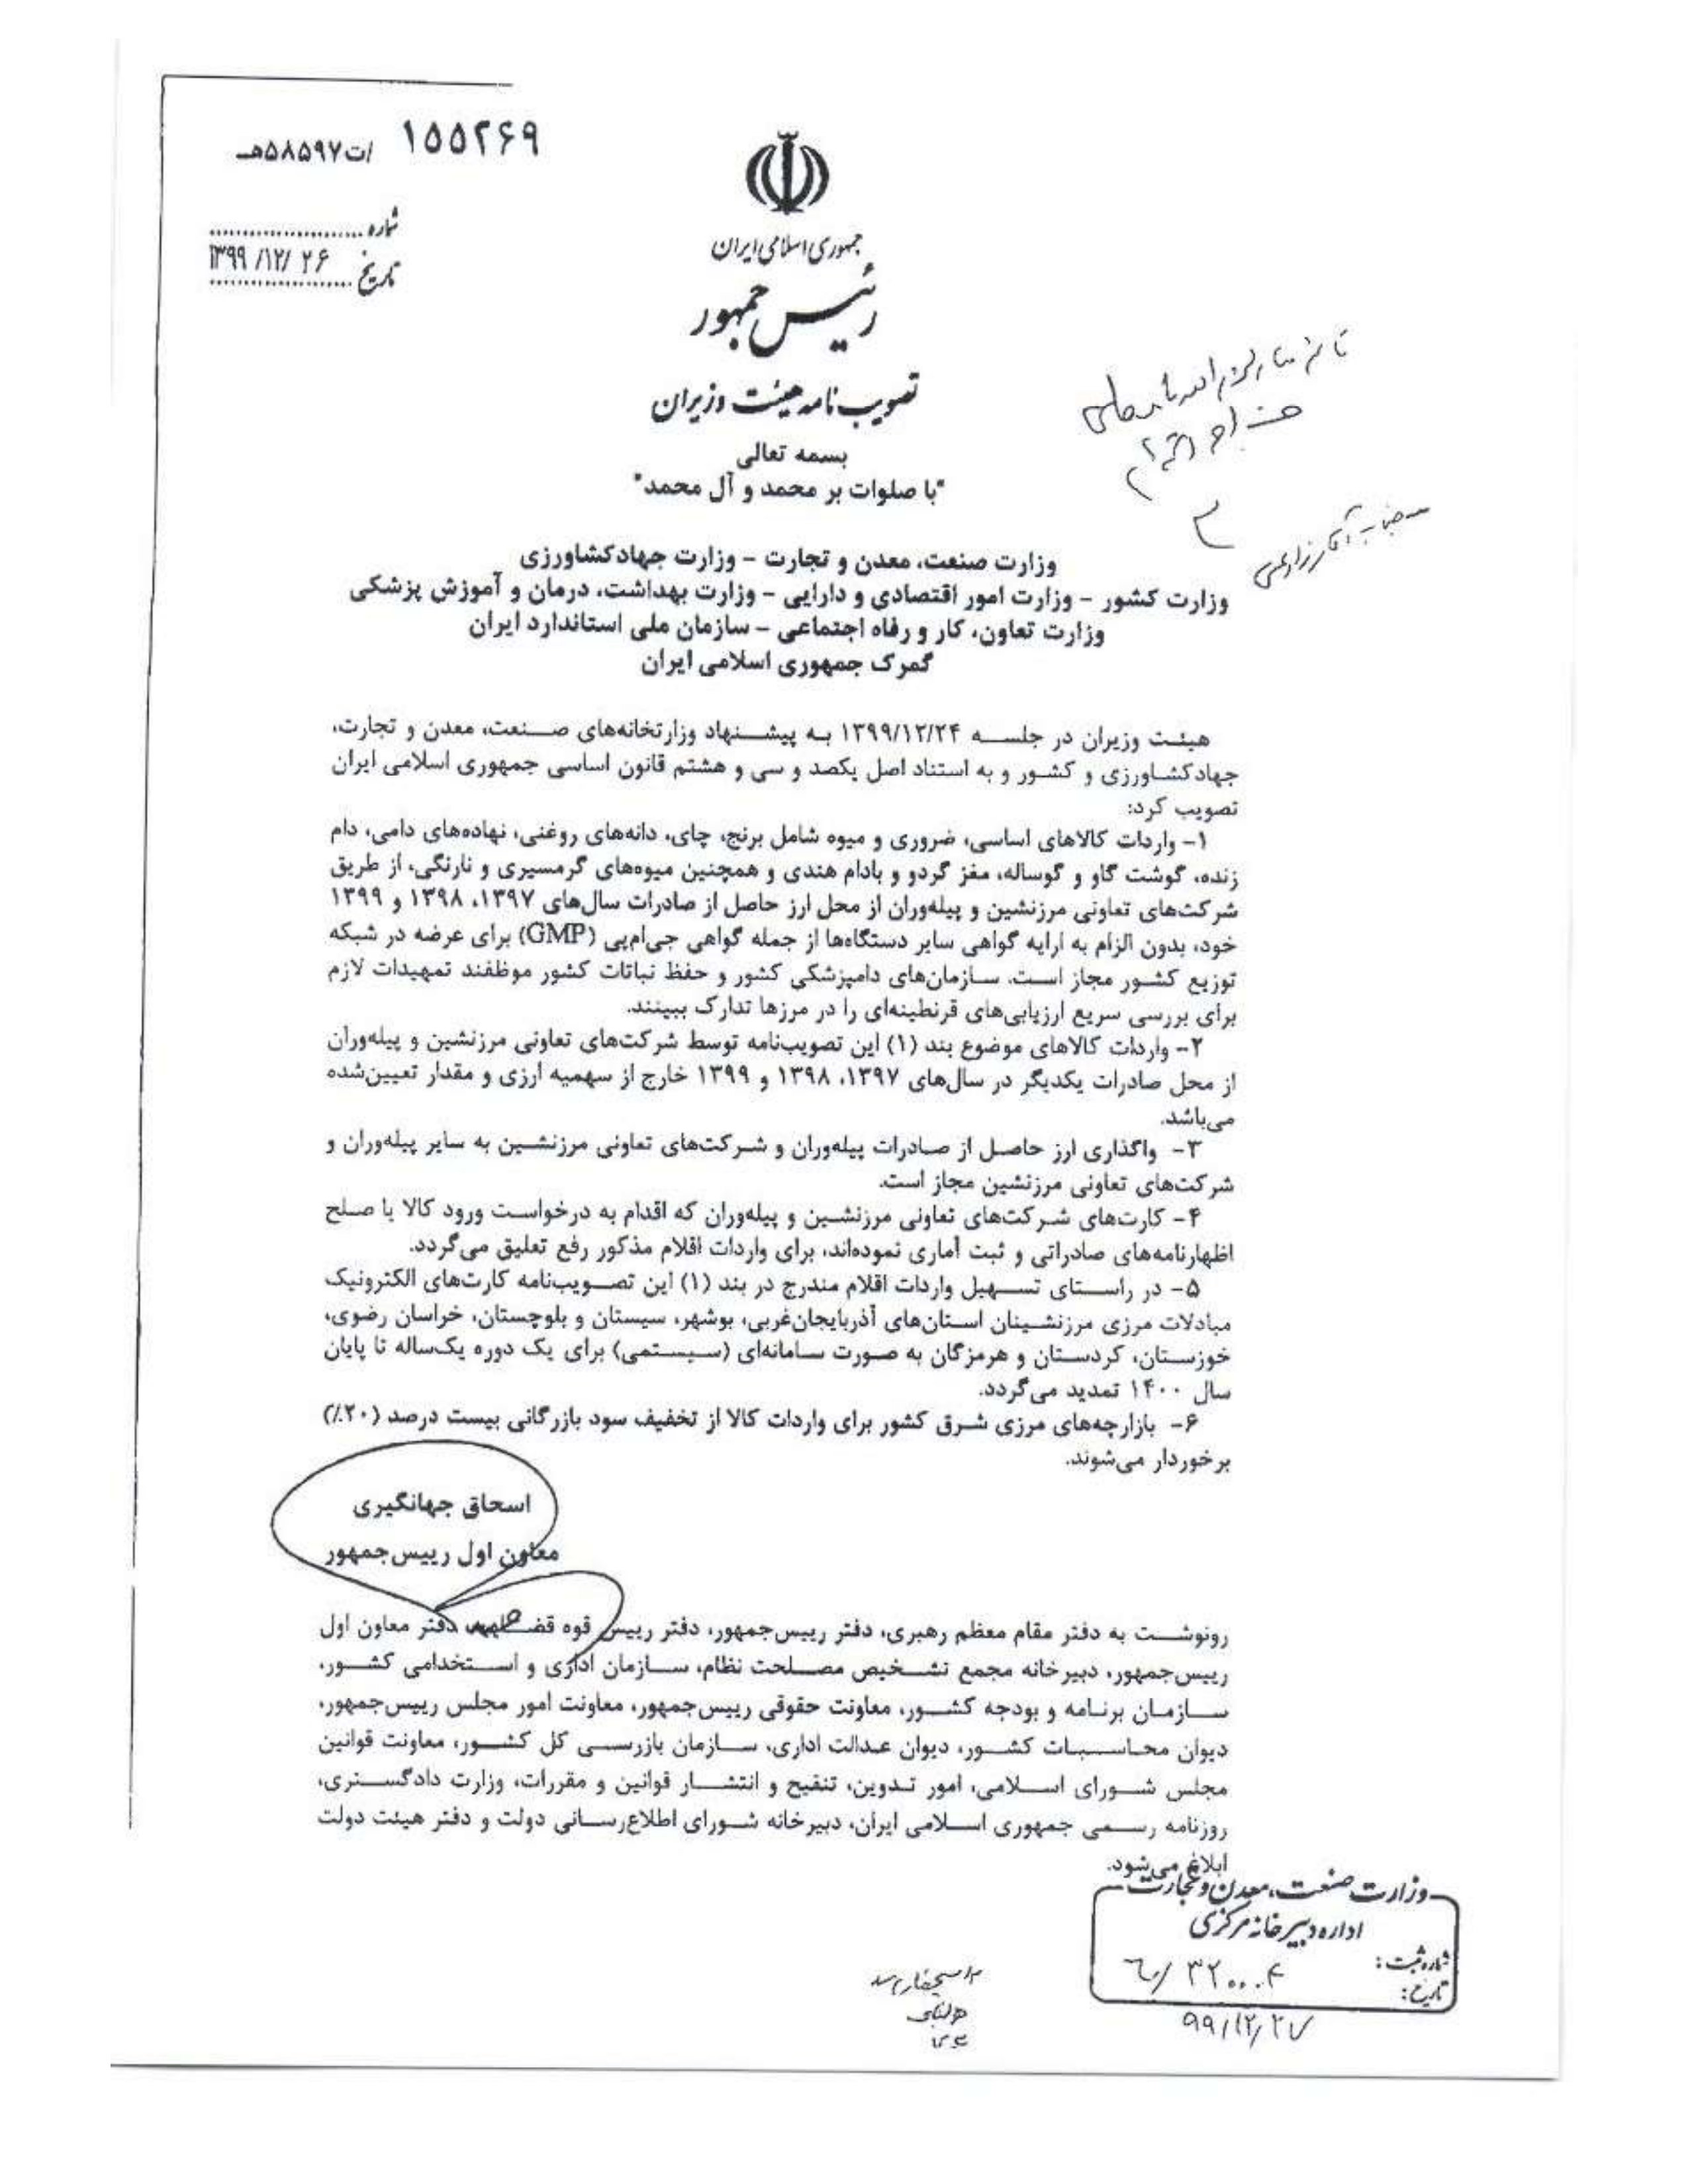 ۱۵۵۲۶۹ /ت۵۸۵۹۷هـ
شماره
تاریخ ۱۳۹۹/۱۲/۲۶
جمهوری اسلامی ایران
رئیس جمهور
تصویب نامه هیئت وزیران
بسمه تعالی
"با صلوات بر محمد و آل محمد"
وزارت صنعت، معدن و تجارت – وزارت جهادکشاورزی
وزارت کشور – وزارت امور اقتصادی و دارایی – وزارت بهداشت، درمان و آموزش پزشکی
وزارت تعاون، کار و رفاه اجتماعی – سازمان ملی استاندارد ایران
گمرک جمهوری اسلامی ایران
هیئت وزیران در جلسه ۱۳۹۹/۱۲/۲۴ به پیشنهاد وزارتخانه‌های صنعت، معدن و تجارت،
جهادکشاورزی و کشور و به استناد اصل یکصد و سی و هشتم قانون اساسی جمهوری اسلامی ایران
تصویب کرد:
۱- واردات کالاهای اساسی، ضروری و میوه شامل برنج، چای، دانه‌های روغنی، نهاده‌های دامی، دام
زنده، گوشت گاو و گوساله، مغز گردو و بادام هندی و همچنین میوه‌های گرمسیری و نارنگی، از طریق
شرکت‌های تعاونی مرزنشین و پیله‌وران از محل ارز حاصل از صادرات سال‌های ۱۳۹۷، ۱۳۹۸ و ۱۳۹۹
خود، بدون الزام به ارایه گواهی سایر دستگاه‌ها از جمله گواهی جی‌ام‌پی (GMP) برای عرضه در شبکه
توزیع کشور مجاز است. سازمان‌های دامپزشکی کشور و حفظ نباتات کشور موظفند تمهیدات لازم
برای بررسی سریع ارزیابی‌های قرنطینه‌ای را در مرزها تدارک ببینند.
۲- واردات کالاهای موضوع بند (۱) این تصویب‌نامه توسط شرکت‌های تعاونی مرزنشین و پیله‌وران
از محل صادرات یکدیگر در سال‌های ۱۳۹۷، ۱۳۹۸ و ۱۳۹۹ خارج از سهمیه ارزی و مقدار تعیین‌شده
می‌باشد.
۳- واگذاری ارز حاصل از صادرات پیله‌وران و شرکت‌های تعاونی مرزنشین به سایر پیله‌وران و
شرکت‌های تعاونی مرزنشین مجاز است.
۴- کارت‌های شرکت‌های تعاونی مرزنشین و پیله‌وران که اقدام به درخواست ورود کالا با صلح
اظهارنامه‌های صادراتی و ثبت آماری نموده‌اند، برای واردات اقلام مذکور رفع تعلیق می‌گردد.
۵- در راستای تسهیل واردات اقلام مندرج در بند (۱) این تصویب‌نامه کارت‌های الکترونیک
مبادلات مرزی مرزنشینان استان‌های آذربایجان‌غربی، بوشهر، سیستان و بلوچستان، خراسان رضوی،
خوزستان، کردستان و هرمزگان به صورت سامانه‌ای (سیستمی) برای یک دوره یک‌ساله تا پایان
سال ۱۴۰۰ تمدید می‌گردد.
۶- بازارچه‌های مرزی شرق کشور برای واردات کالا از تخفیف سود بازرگانی بیست درصد (۲۰٪)
برخوردار می‌شوند.
اسحاق جهانگیری
معاون اول رییس‌جمهور
رونوشت به دفتر مقام معظم رهبری، دفتر رییس‌جمهور، دفتر رییس قوه قضاییه، دفتر معاون اول
رییس‌جمهور، دبیرخانه مجمع تشخیص مصلحت نظام، سازمان اداری و استخدامی کشور،
سازمان برنامه و بودجه کشور، معاونت حقوقی رییس‌جمهور، معاونت امور مجلس رییس‌جمهور،
دیوان محاسبات کشور، دیوان عدالت اداری، سازمان بازرسی کل کشور، معاونت قوانین
مجلس شورای اسلامی، امور تدوین، تنقیح و انتشار قوانین و مقررات، وزارت دادگستری،
روزنامه رسمی جمهوری اسلامی ایران، دبیرخانه شورای اطلاع‌رسانی دولت و دفتر هیئت دولت
ابلاغ می‌شود.
وزارت صنعت، معدن و تجارت
اداره دبیرخانه مرکزی
شماره ثبت: ۶۰/۳۲۰۰۰۴
تاریخ:
۹۹/۱۲/۲۷